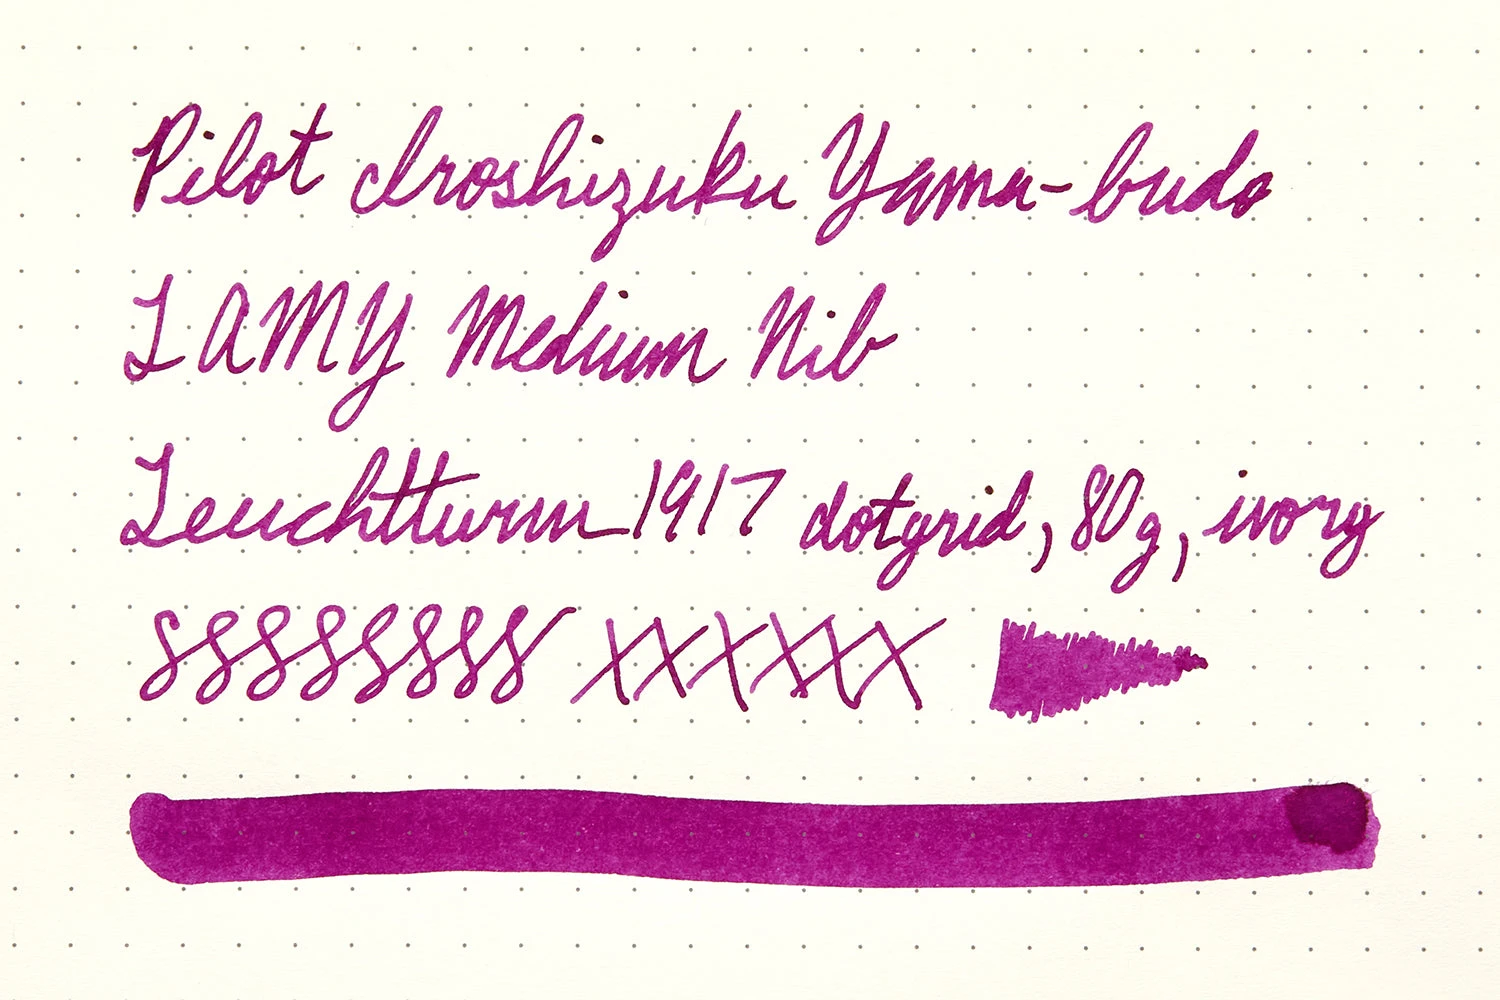 Pilot Iroshizuku Yama-budo
LAMY Medium Nib
Leuchtturm 1917 dotgrid, 80g, ivory